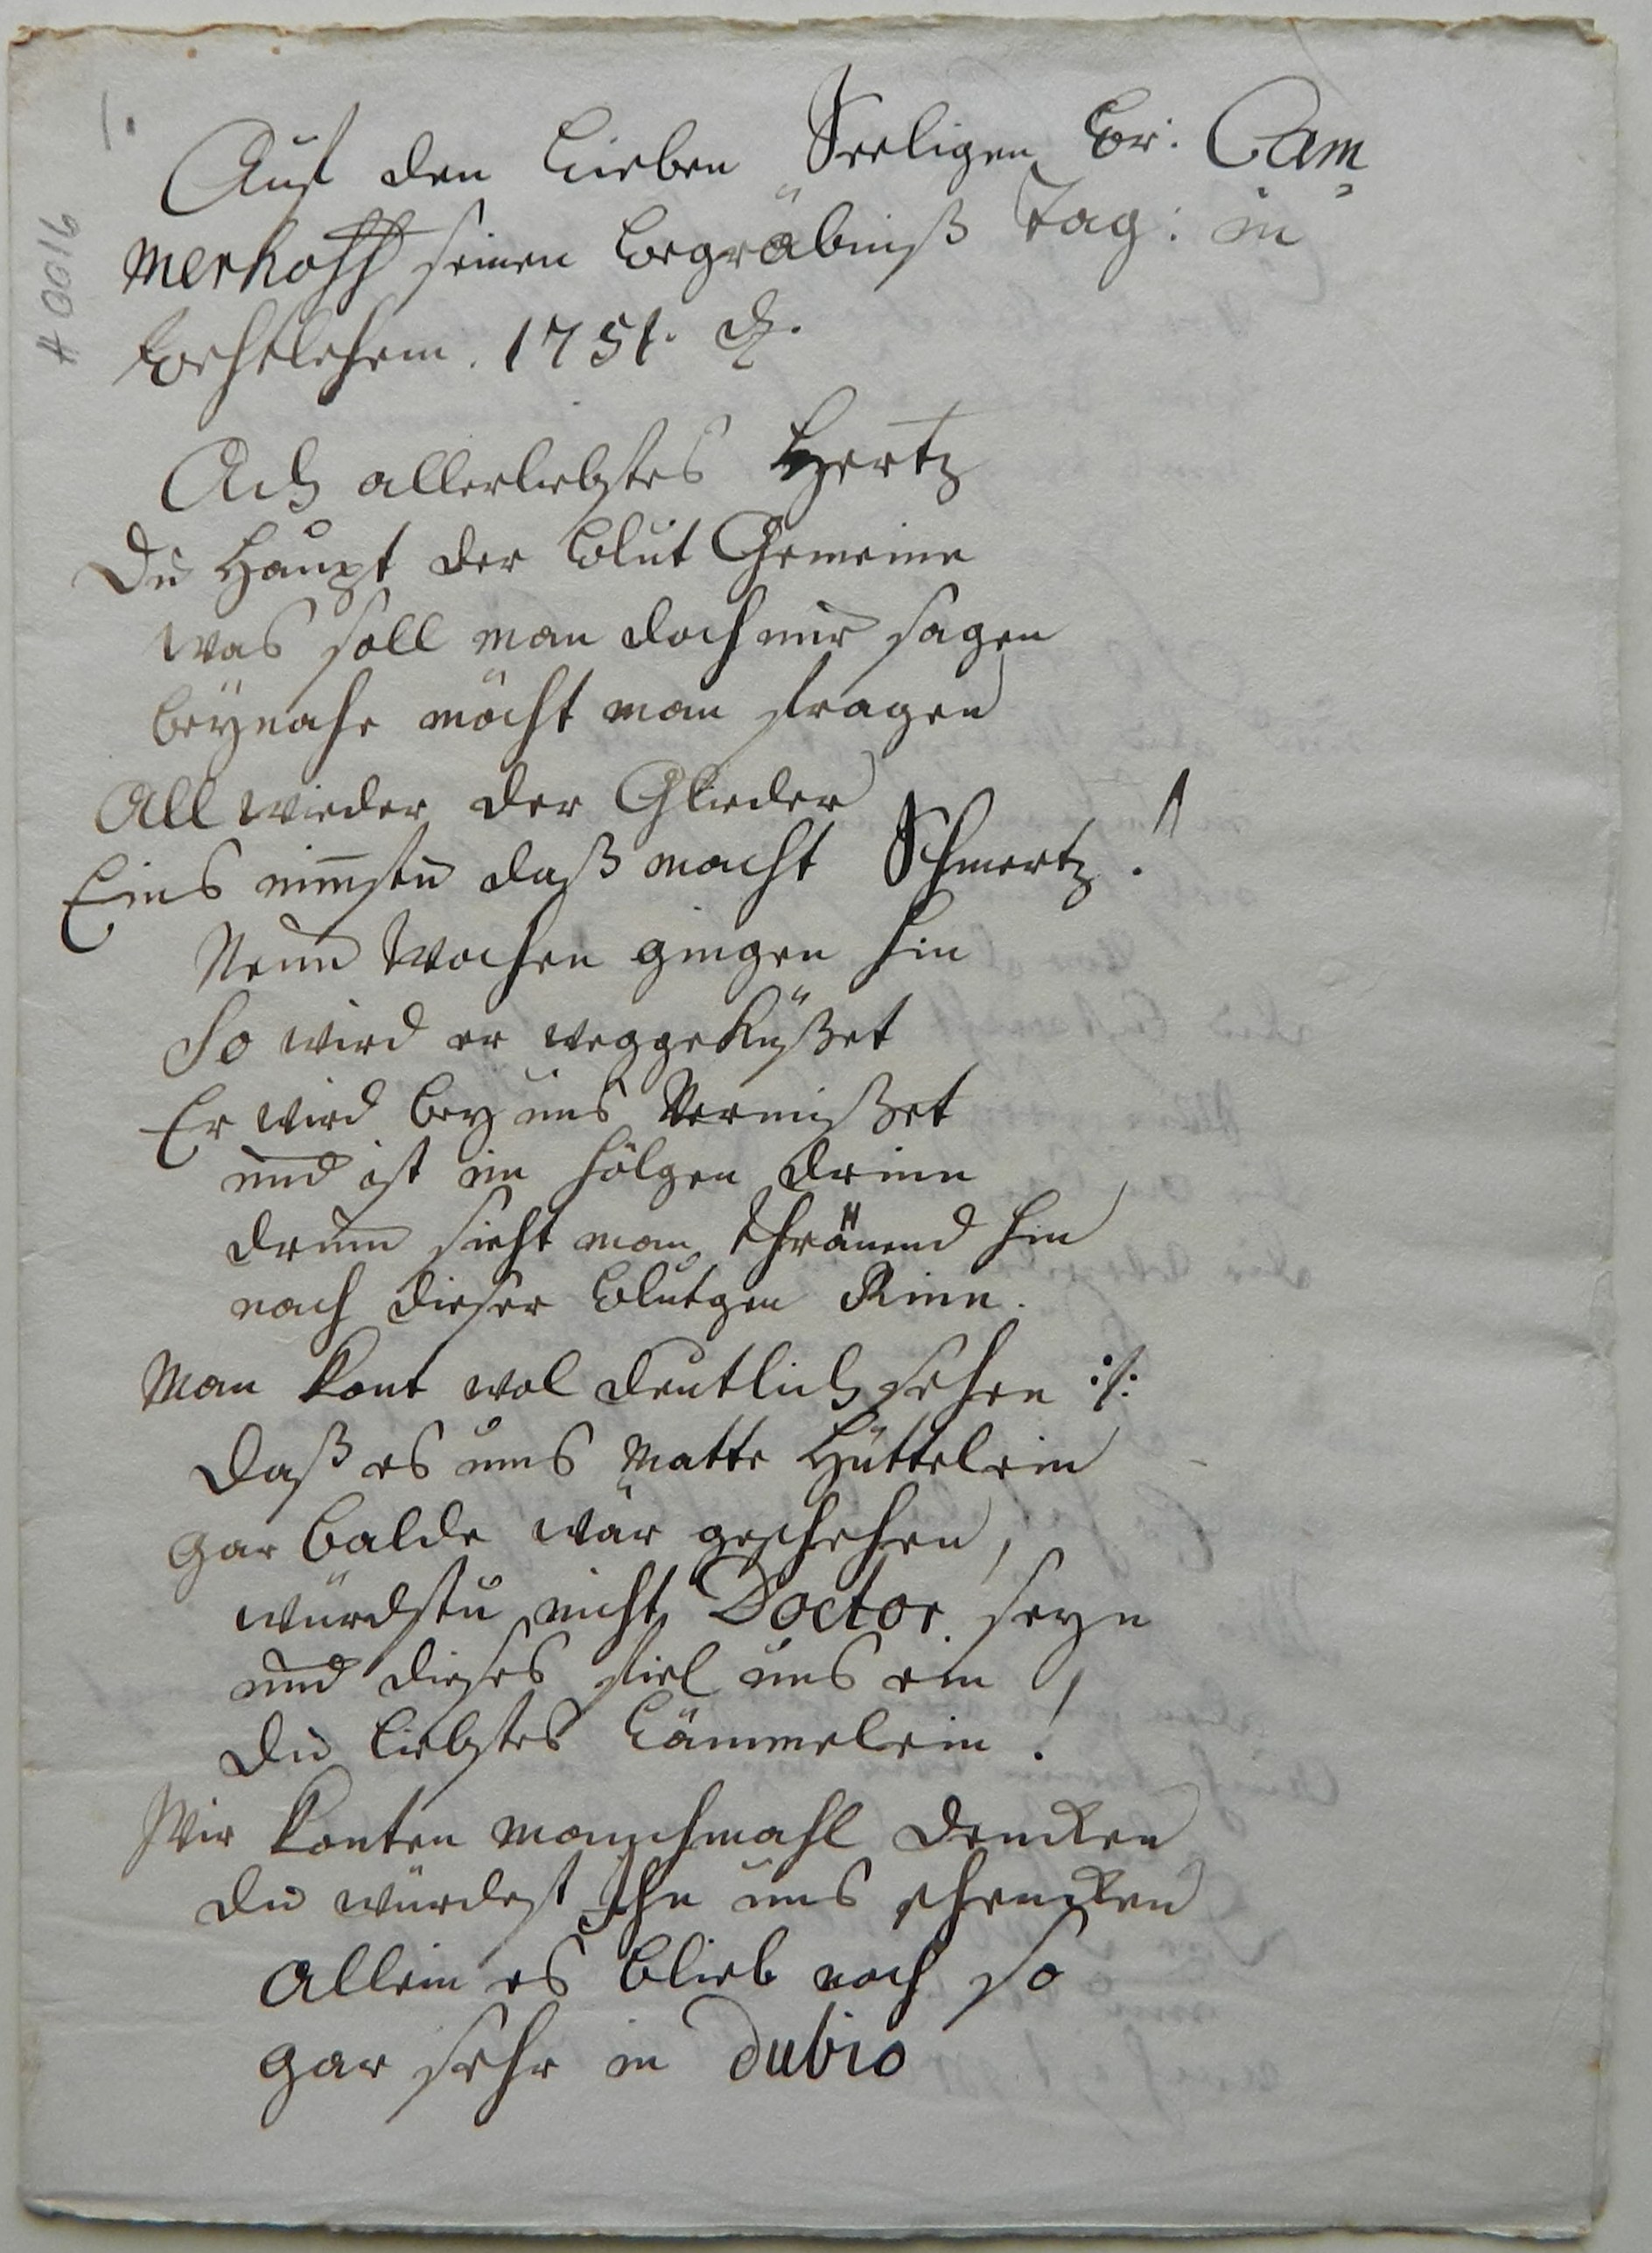 1.
# 0016
Auf den Lieben Seeligen Br: Cam
merhoff seinen Begräbniß Tag: in
Bethlehem. 1751.
Ach allerliebstes Hertz
Du Haupt der Blut Gemeine
was soll man doch nur sagen
beÿnahe möcht man fragen
All wieder der Glieder
Eins nim̅stu daß macht Schmertz!
Neun Wochen gingen hin
So wird er weggeküßet
Er wird bey uns Vermißet
und ist im hölgen drinn
drum̅ sieht man thränend hin
nach dieser blutgen Rinn.
Man kont wol deutlich sehen :/:
daß es ums Matte Hüttelein
gar balde wär geschehen,
würdstu nicht Doctor seyn
und dieses fiel uns ein,
du liebstes Lämmelein!
Wir konten manchmahl dencken
du würdest Ihn uns schencken
allein es blieb noch so
gar sehr in dubio